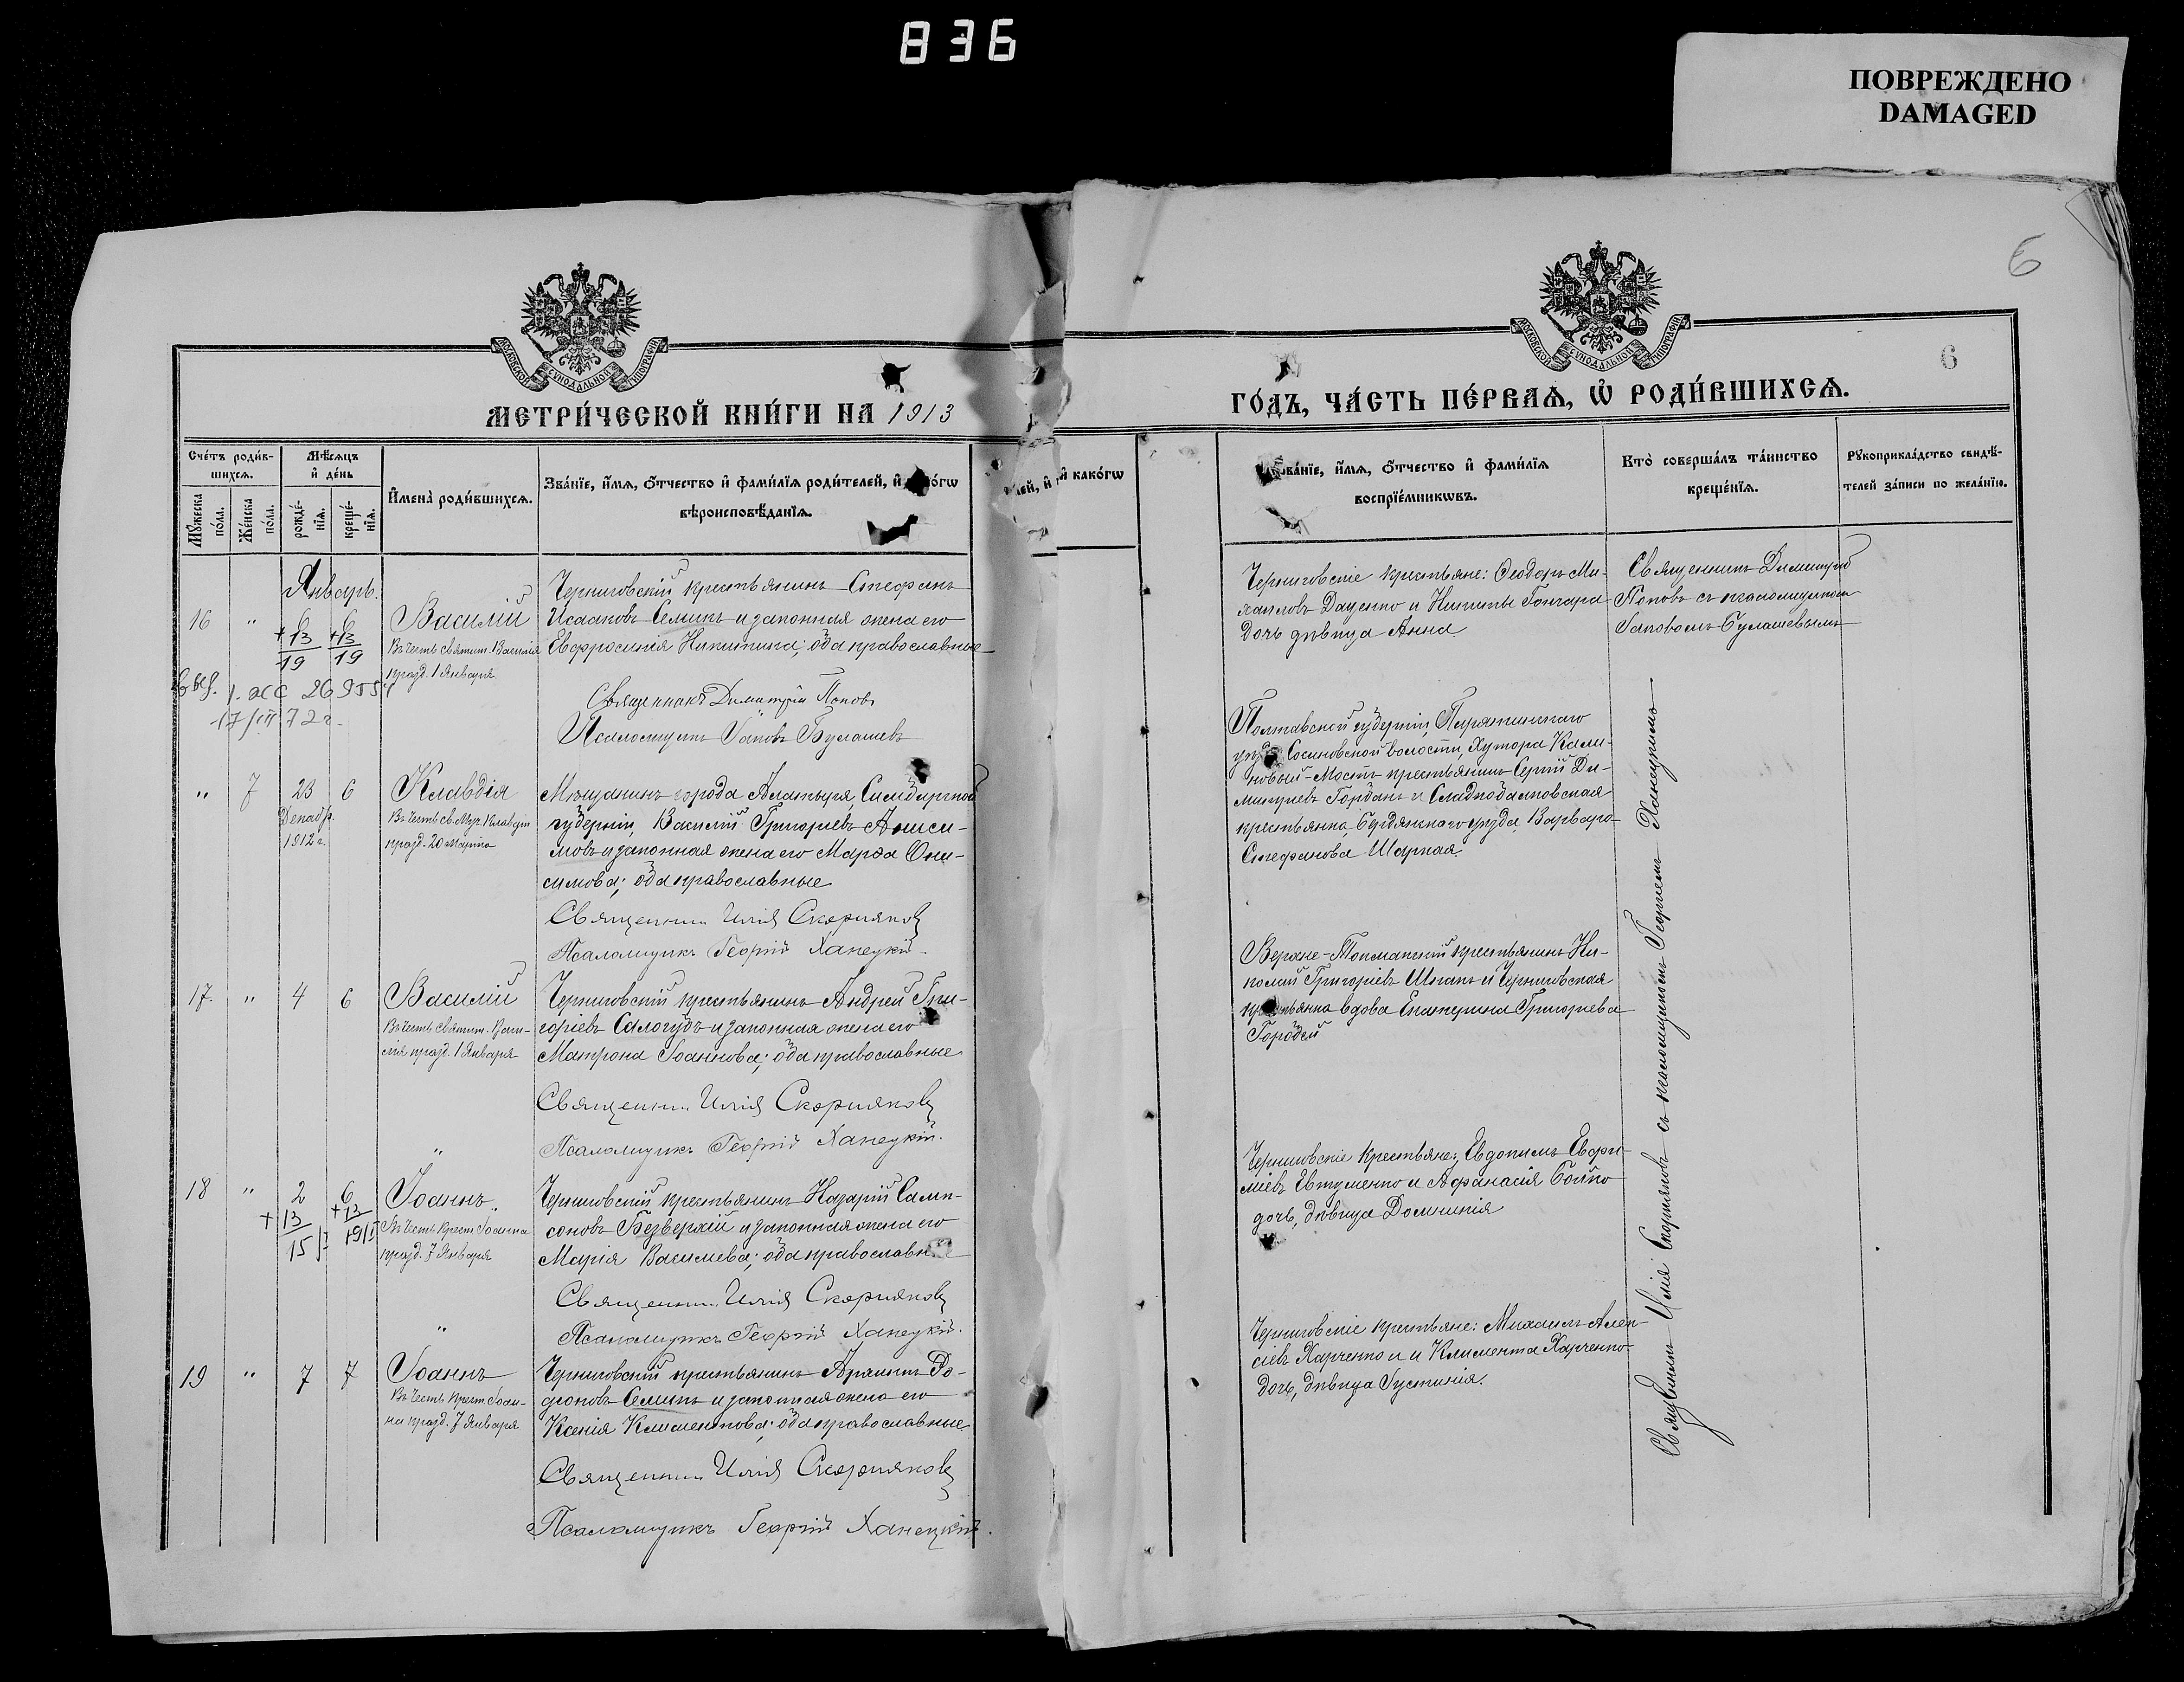 836
ПОВРЕЖДЕНО
DAMAGED
6
6
МОСКОВСКОЙ СУНОДАЛЬНОЙ ТИПОГРАФІИ
МОСКОВСКОЙ СУНОДАЛЬНОЙ ТИПОГРАФІИ
МЕТРИ́ЧЕСКОЙ КНИ́ГИ НА 1913
ГО́ДЪ, ЧА́СТЬ ПЕ́РВАѦ, Ѡ҆ РОДИ́ВШИХСѦ.
Сче́тъ роди́в-
шихсѧ.
Мꙋжеска по́ла.
Же́нска по́ла.
Мѣ́сѧцъ
и҆ де́нь
рожде́-
нїѧ.
креще́-
нїѧ.
И҆мена̀ роди́вшихсѧ.
Зва́нїе, и҆́мѧ, ѻ҆́тчество и҆ фами́лїѧ роди́телей, и҆ како́гѡ
вѣроисповѣ́данїѧ.
и҆ како́гѡ
Зва́нїе, и҆́мѧ, ѻ҆́тчество и҆ фами́лїѧ
воспрїе́мникѡвъ.
Кто̀ соверша́лъ та́инство
креще́нїѧ.
Рꙋкоприкла́дство свидѣ́-
телей за́писи по жела́нїю.
Январь.
16 " 6 6 Василій
+13 +13
19 19
Въ честь святит. Василія
празд. 1 Января
26955
17/III 72 г.
Черниговскій крестьянинъ Стефанъ
Исааковъ Семикъ и законная жена его
Евфросинія Никитина; оба православные
Священникъ Димитрій Поповъ
Псаломщикъ Іаковъ Булашевъ
Черниговскіе крестьяне: Ѳеодоръ Ми-
хаиловъ Даценко и Никиты Гончара
дочь девица Анна
Священникъ Димитрій
Поповъ съ псаломщикомъ
Іаковомъ Булашевымъ
" 7 23 6 Клавдія
Декабр.
1912 г.
Въ честь св. Муч. Клавдіи
празд. 20 Марта
Мѣщанинъ города Алатыря, Симбирской
губерніи, Василій Григорьевъ Аниси-
мовъ и законная жена его Марѳа Они-
симова; оба православные
Священникъ Илія Скорняковъ
Псаломщикъ Георгій Ханецкій.
Полтавской губерніи, Пирятинскаго
уѣзда Сосновской волости, Хутора Кали-
новый-Мостъ крестьянинъ Сергій Ди-
митріевъ Горданъ и
крестьянка, Бердянскаго уѣзда, Варвара
Стефанова Шарная.
17 " 4 6 Василій
Въ честь святит. Васи-
лія празд. 1 Января
Черниговскій крестьянинъ Андрей Гри-
горіевъ Салогубъ и законная жена его
Матрона Іоаннова; оба православные
Священникъ Илія Скорняковъ
Псаломщикъ Георгій Ханецкій.
Верхне-Токмакскій крестьянинъ Ни-
колай Григоріевъ и Черниговская
крестьянка вдова Екатерина Григорьева
18 " 2 6 Іоаннъ
+13 +13
15/I 19/I
Въ честь Крест. Іоанна
празд. 7 Января
Черниговскій крестьянинъ Назарій Самп-
соновъ Безверхій и законная жена его
Марія Васильева; оба православные
Священникъ Илія Скорняковъ
Псаломщикъ Георгій Ханецкій.
Черниговскіе крестьяне: Евдокимъ Евфи-
міевъ Евтушенко и Аѳанасія Бойко
дочь, дѣвица Домникія
19 " 7 7 Іоаннъ
Въ честь Крест. Іоан-
на празд. 7 Января
Черниговскій крестьянинъ Аркипъ Ро-
діоновъ Семикъ и законная жена его
Ксенія Климентова; оба православные
Священникъ Илія Скорняковъ
Псаломщикъ Георгій Ханецкій.
Черниговскіе крестьяне: Михаилъ Алек-
сіевъ Харченко и Климента Харченко
дочь, дѣвица Іустинія.
Священникъ Илія Скорняковъ съ псаломщикомъ Георгіемъ Ханецкимъ